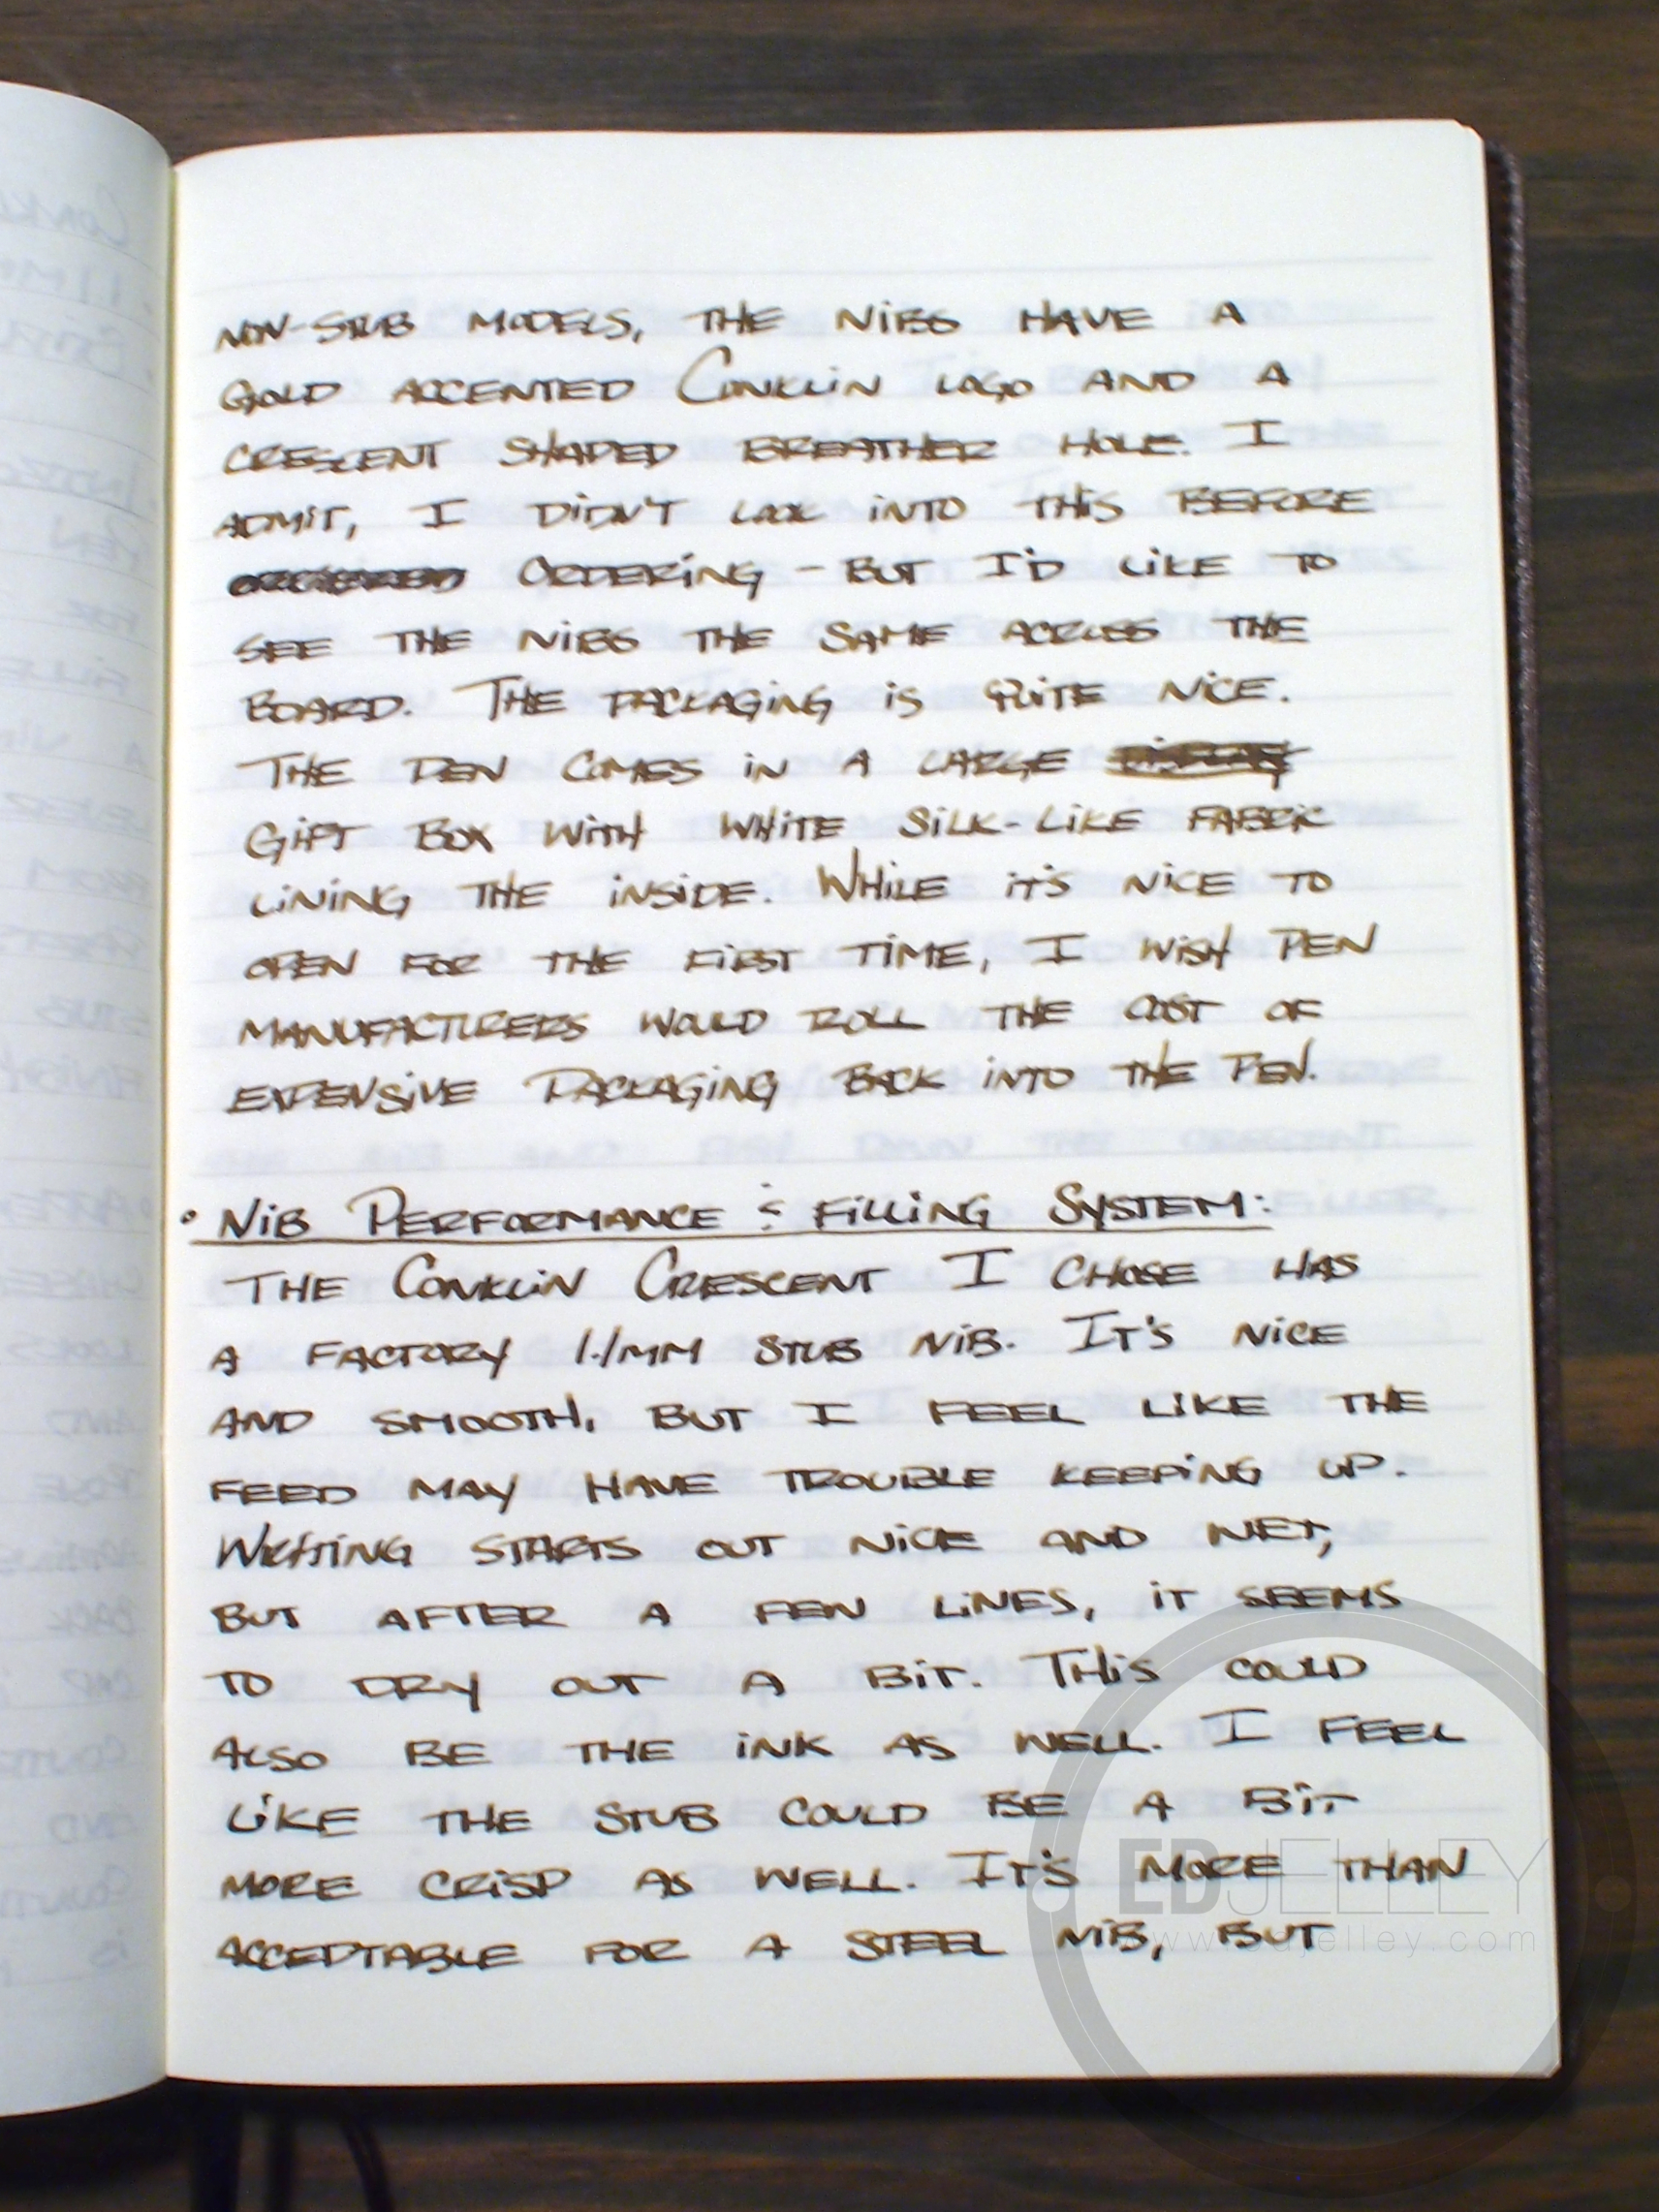 NON-STUB MODELS, THE NIBS HAVE A
GOLD ACCENTED CONKLIN LOGO AND A
CRESCENT SHAPED BREATHER HOLE. I
ADMIT, I DIDN'T LOOK INTO THIS BEFORE
ORDERING - BUT I'D LIKE TO
SEE THE NIBS THE SAME ACROSS THE
BOARD. THE PACKAGING IS QUITE NICE.
THE PEN COMES IN A LARGE
GIFT BOX WITH WHITE SILK-LIKE FABRIC
LINING THE INSIDE. WHILE IT'S NICE TO
OPEN FOR THE FIRST TIME, I WISH PEN
MANUFACTURERS WOULD ROLL THE COST OF
EXPENSIVE PACKAGING BACK INTO THE PEN.
• NIB PERFORMANCE & FILLING SYSTEM:
THE CONKLIN CRESCENT I CHOSE HAS
A FACTORY 1.1MM STUB NIB. IT'S NICE
AND SMOOTH, BUT I FEEL LIKE THE
FEED MAY HAVE TROUBLE KEEPING UP.
WRITING STARTS OUT NICE AND WET,
BUT AFTER A FEW LINES, IT SEEMS
TO DRY OUT A BIT. THIS COULD
ALSO BE THE INK AS WELL. I FEEL
LIKE THE STUB COULD BE A BIT
MORE CRISP AS WELL. IT'S MORE THAN
ACCEPTABLE FOR A STEEL NIB, BUT
EDJELLEY
www.edjelley.com